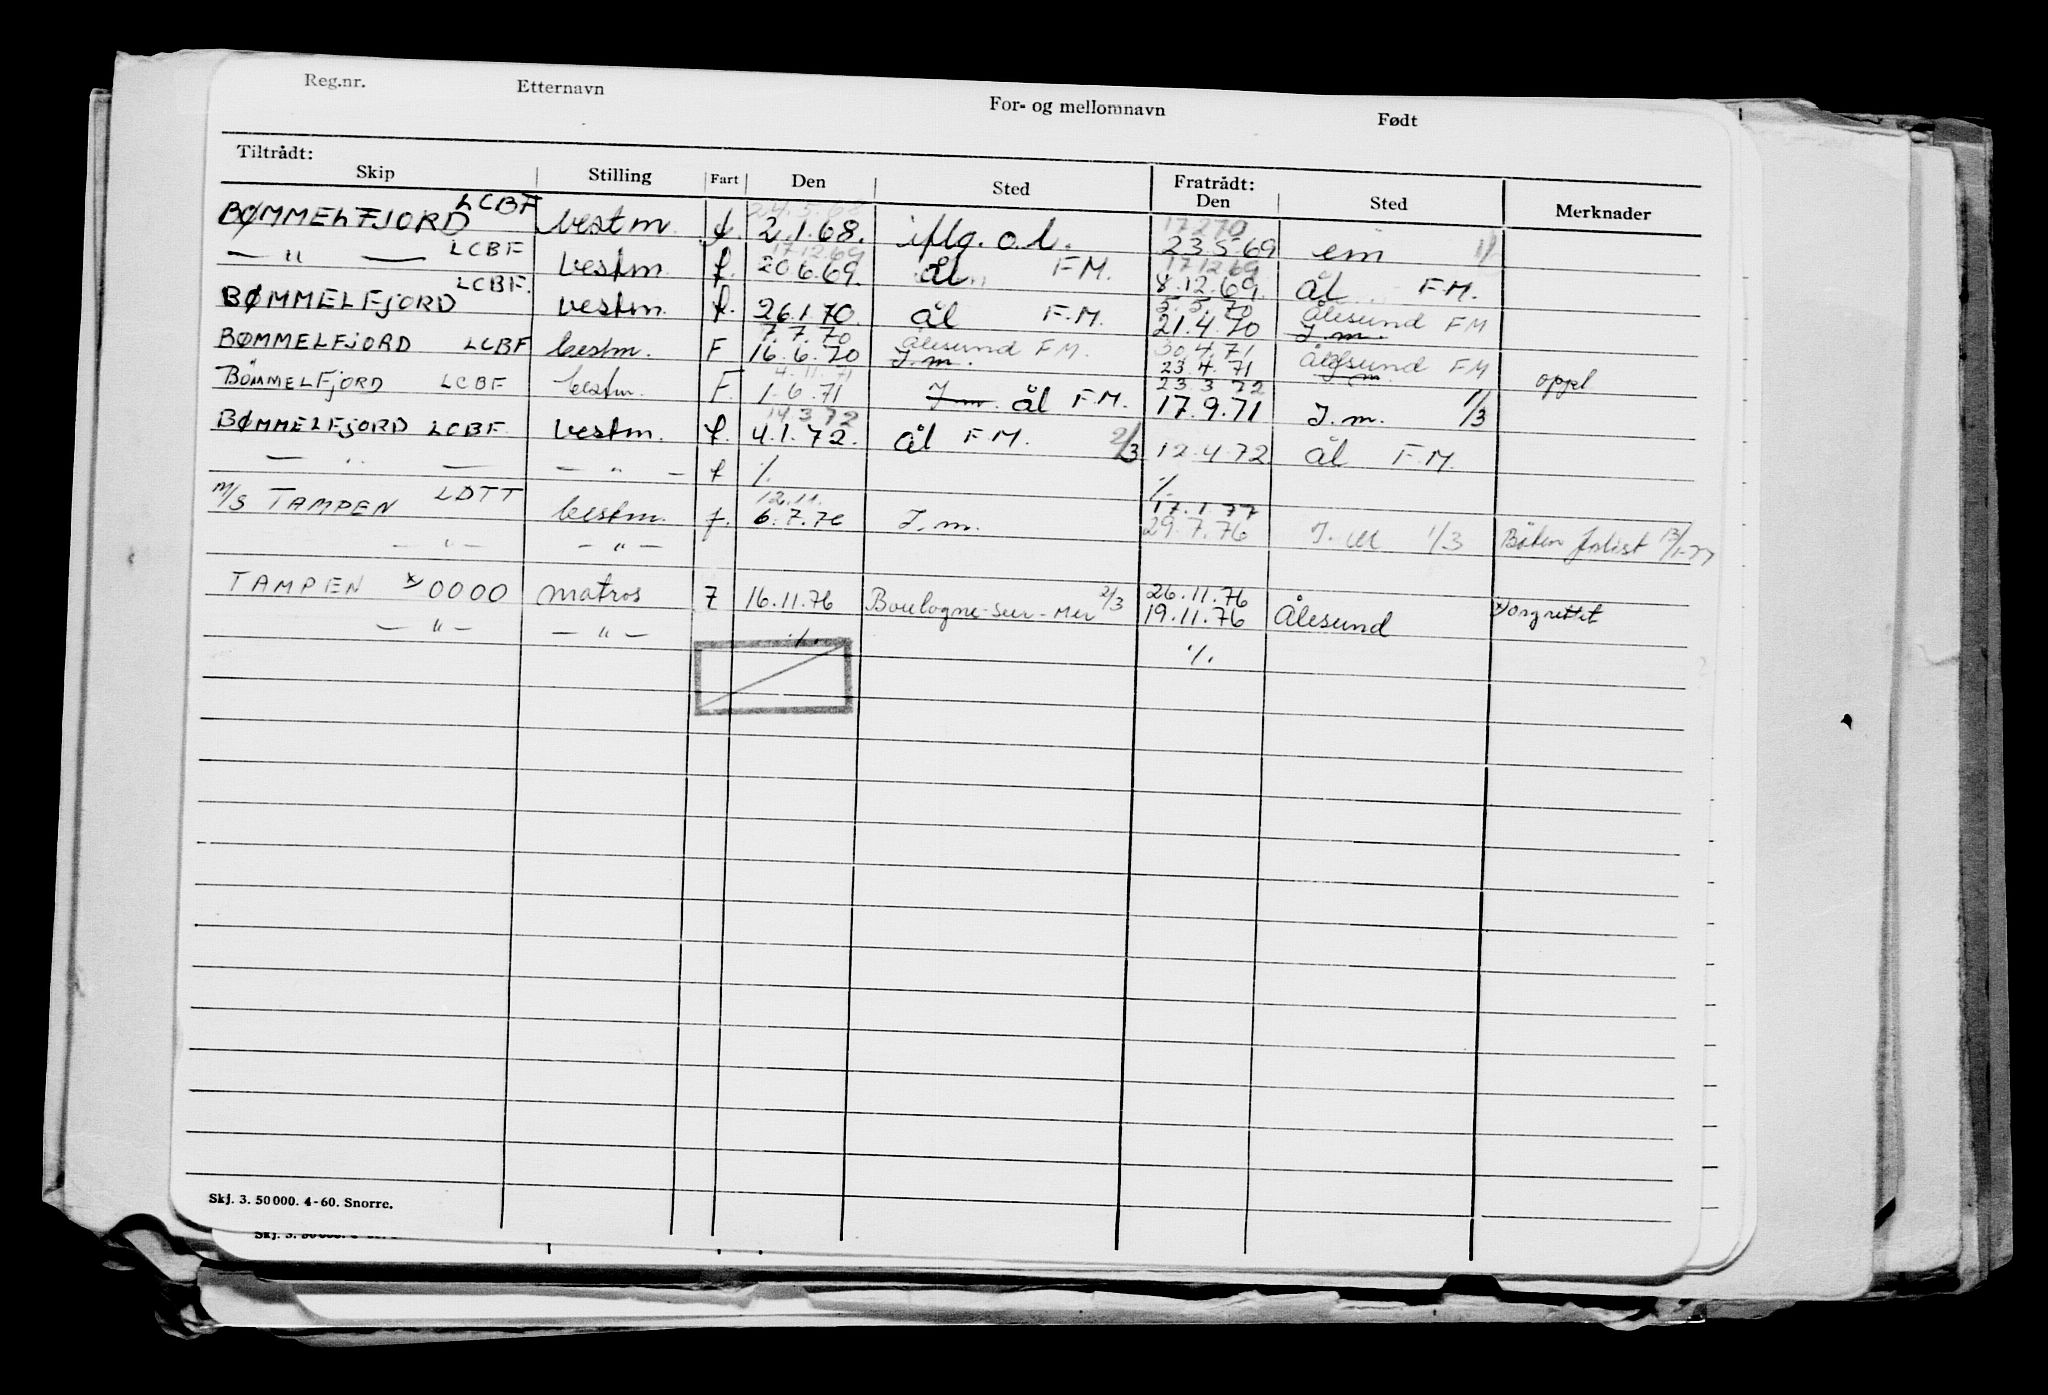 Reg.nr. Etternavn For- og mellomnavn Født
Tiltrådt: Fratrådt:
Skip Stilling Fart Den Sted Den Sted Merknader
24.5.68 17 2 70
BØMMELFJORD LCBF bestm. f. 2.1.68. iflg. o.l. 23.5.69 em 1/
17.12.69 17.12.69
— " — LCBF bestm. f. 20.6.69. ål F.M. 8.12.69. ål F.M.
5.5.70 Ålesund FM
BØMMELFJORD LCBF. bestm. f. 26.1.70. ål F.M. 21.4.70 J.m.
7.7.70 Ålesund FM. 30.4.71
BØMMELFJORD LCBF bestm. F 16.6.70 J.m. 23.4.71 Ålesund FM oppl
4.11.71 23.3.72
BÖMMELFJORD LCBF bestm. F. 1.6.71 J.m. ål F.M. 17.9.71 J.m. 1/3
14.3.72
BØMMELFJORD LCBF bestm. f. 4.1.72. ål F.M. 2/3 12.4.72 ål F.M.
— " — — " — f ./. ./.
12.11. 17.1.77
M/S TAMPEN LDTT bestm. f. 6.7.76 J.m. 29.7.76 J.m 1/3 Båten forlist 13/1-77
— " — — " —
26.11.76
TAMPEN x) 0000 matros F 16.11.76 Boulogne-sur-Mer 2/3 19.11.76 Ålesund x) oregrettet
— " — — " — ./. ./.
Skj. 3. 50 000. 4-60. Snorre.